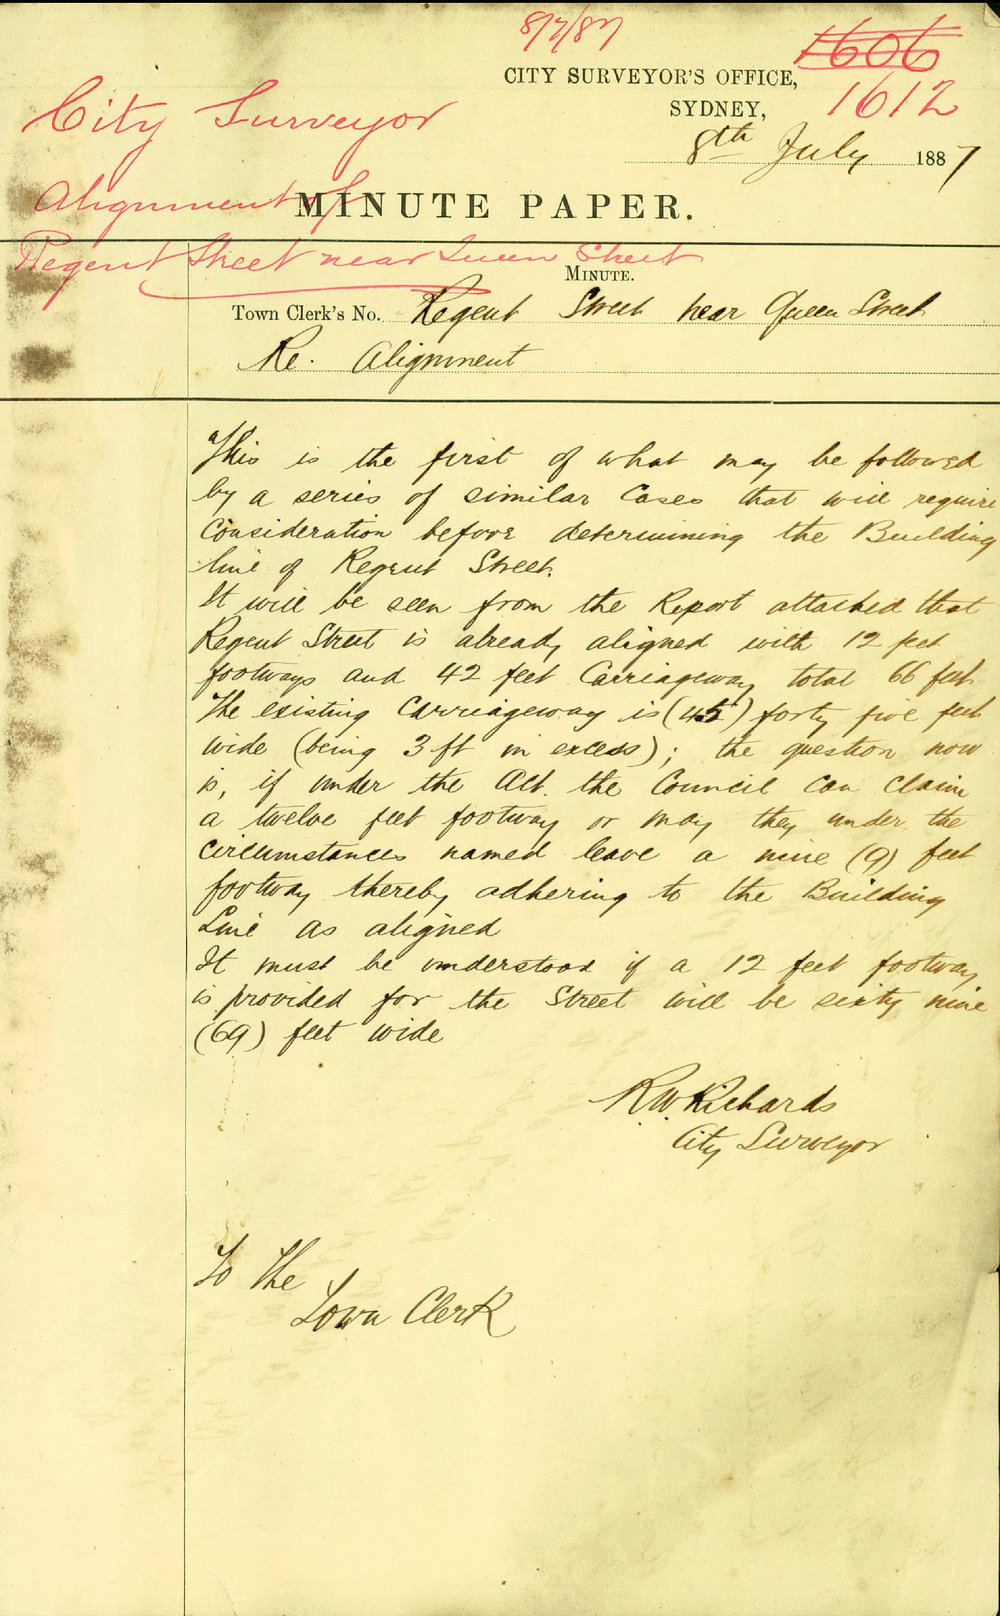 8/7/87
1606
CITY SURVEYOR'S OFFICE,
SYDNEY,
1612
City Surveyor
8th July 1887
Alignment of
MINUTE PAPER.
Regent Street near Queen Street
MINUTE.
Town Clerk's No. Regent Street near Queen Street
Re. Alignment
This is the first of what may be followed
by a series of similar Cases that will require
Consideration before determining the Building
line of Regent Street.
It will be seen from the Report attached that
Regent Street is already aligned with 12 feet
footways and 42 feet Carriageway total 66 feet.
The existing Carriageway is (45') forty five feet
wide (being 3 ft in excess); the question now
is, if under the Act. the Council Can Claim
a twelve feet footway or may they under the
Circumstances named leave a nine (9) feet
footway thereby adhering to the Building
Line as aligned
It must be understood if a 12 feet footway
is provided for the Street will be sixty nine
(69) feet wide
R.W. Richards
City Surveyor
To The
Town Clerk